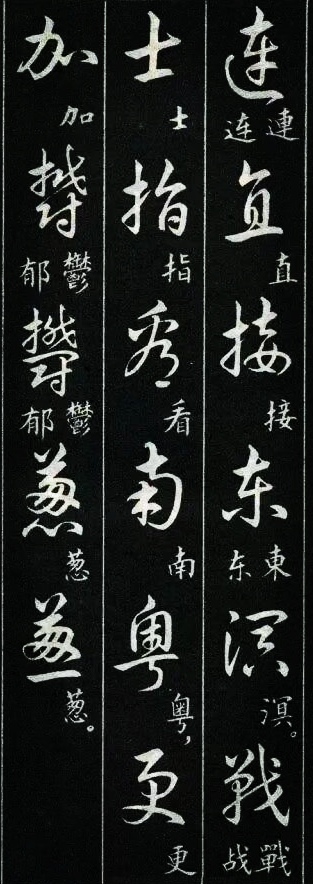 连 连連
直 直
接 接
东 东東
溟 溟。
戰 战戰
士 士
指 指
看 看
南 南
粤 粤，
更 更
加 加
鬱 郁鬱
鬱 郁鬱
葱 葱
葱 葱。